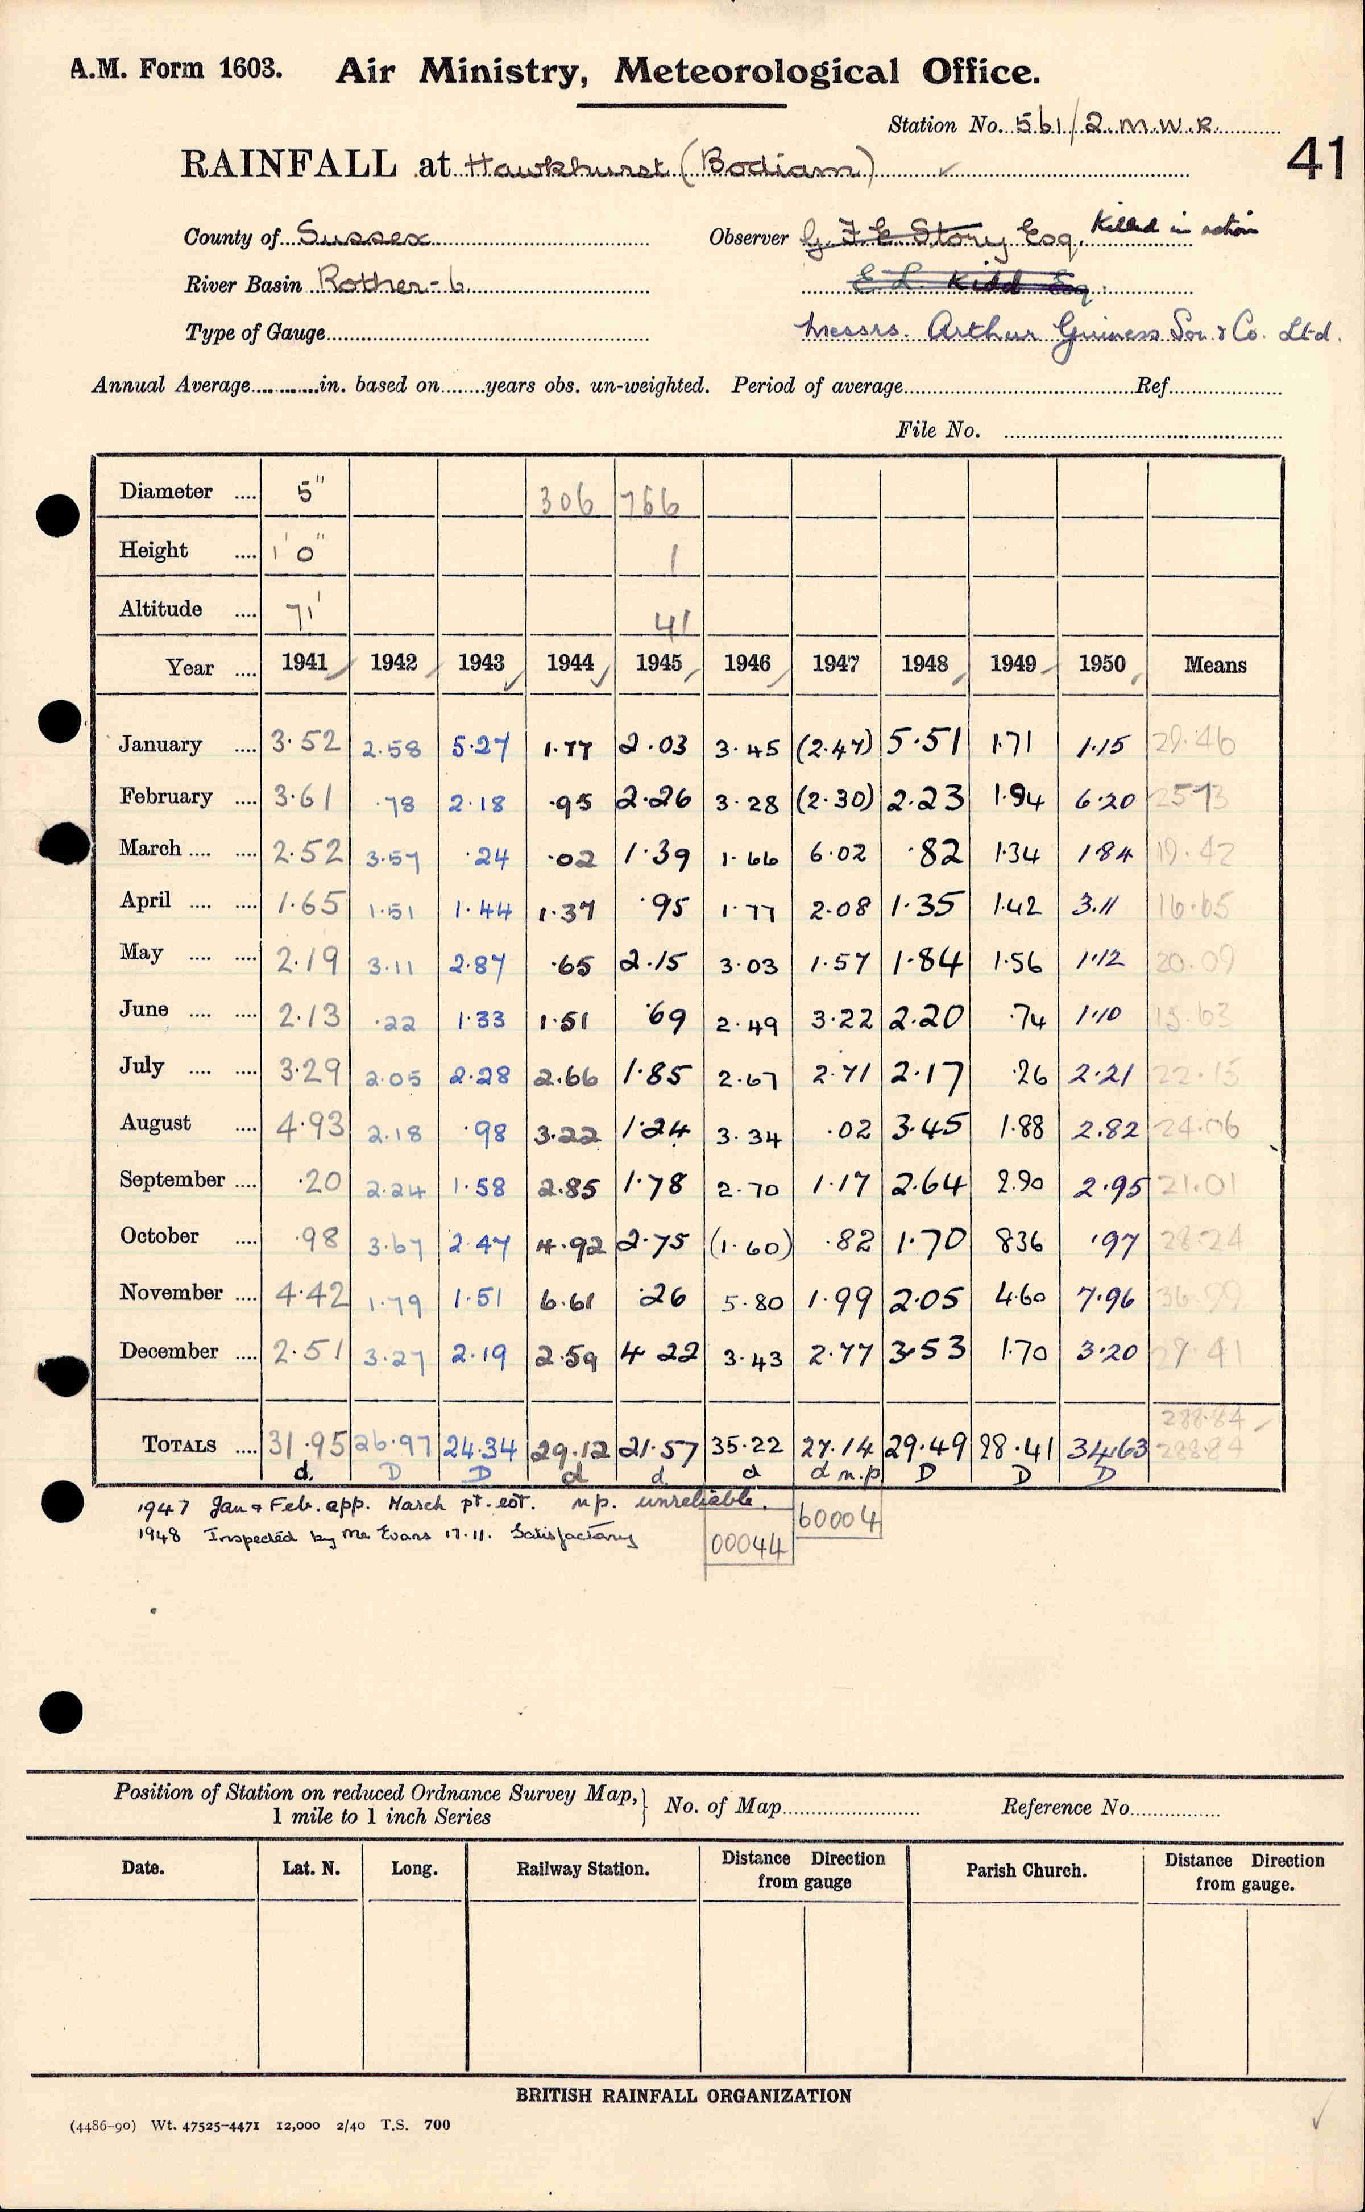 A.M. Form 1603. Air Ministry, Meteorological Office.
Station No. 561/2 M.W.R.
41
RAINFALL at Hawkhurst (Bodiam) ✓
County of Sussex
Observer G. F. E Story Esq. Killed in action
River Basin Rother - 6
E L Kidd Esq.
Type of Gauge
Messrs. Arthur Guiness Son & Co. Ltd.
Annual Average in. based on years obs. un-weighted. Period of average Ref.
File No.
Diameter .... 5" 306 766
Height .... 1' 0" 1
Altitude .... 71' 41
Year .... 1941 1942 1943 1944 1945 1946 1947 1948 1949 1950 Means
January .... 3.52 2.58 5.27 1.77 2.03 3.45 (2.47) 5.51 1.71 1.15 29.46
February .... 3.61 .78 2.18 .95 2.26 3.28 (2.30) 2.23 1.94 6.20 25.73
March .... .... 2.52 3.57 .24 .02 1.39 1.66 6.02 .82 1.34 1.84 19.42
April .... .... 1.65 1.51 1.44 1.37 .95 1.77 2.08 1.35 1.42 3.11 16.65
May .... .... 2.19 3.11 2.87 .65 2.15 3.03 1.57 1.84 1.56 1.12 20.09
June .... .... 2.13 .22 1.33 1.51 .69 2.49 3.22 2.20 .74 1.10 15.63
July .... .... 3.29 2.05 2.28 2.66 1.85 2.67 2.71 2.17 .26 2.21 22.15
August .... 4.93 2.18 .98 3.22 1.24 3.34 .02 3.45 1.88 2.82 24.06
September .... .20 2.24 1.58 2.85 1.78 2.70 1.17 2.64 2.90 2.95 21.01
October .... .98 3.67 2.47 4.92 2.75 (1.60) .82 1.70 8.36 .97 28.24
November .... 4.42 1.79 1.51 6.61 .26 5.80 1.99 2.05 4.60 7.96 36.99
December .... 2.51 3.27 2.19 2.59 4.22 3.43 2.77 3.53 1.70 3.20 29.41
288.84
TOTALS .... 31.95 26.97 24.34 29.12 21.57 35.22 27.14 29.49 28.41 34.63 288.84
d. D D d d d d n.p D D D
1947 Jan & Feb. app. March pt. est. n p. unreliable.
60004
1948 Inspected by Mr Evans 17.11. Satisfactory
00044
Position of Station on reduced Ordnance Survey Map, 1 mile to 1 inch Series } No. of Map Reference No.
Date. Lat. N. Long. Railway Station. Distance Direction from gauge Parish Church. Distance Direction from gauge.
BRITISH RAINFALL ORGANIZATION
(4486-90) Wt. 47525-4471 12,000 2/40 T.S. 700